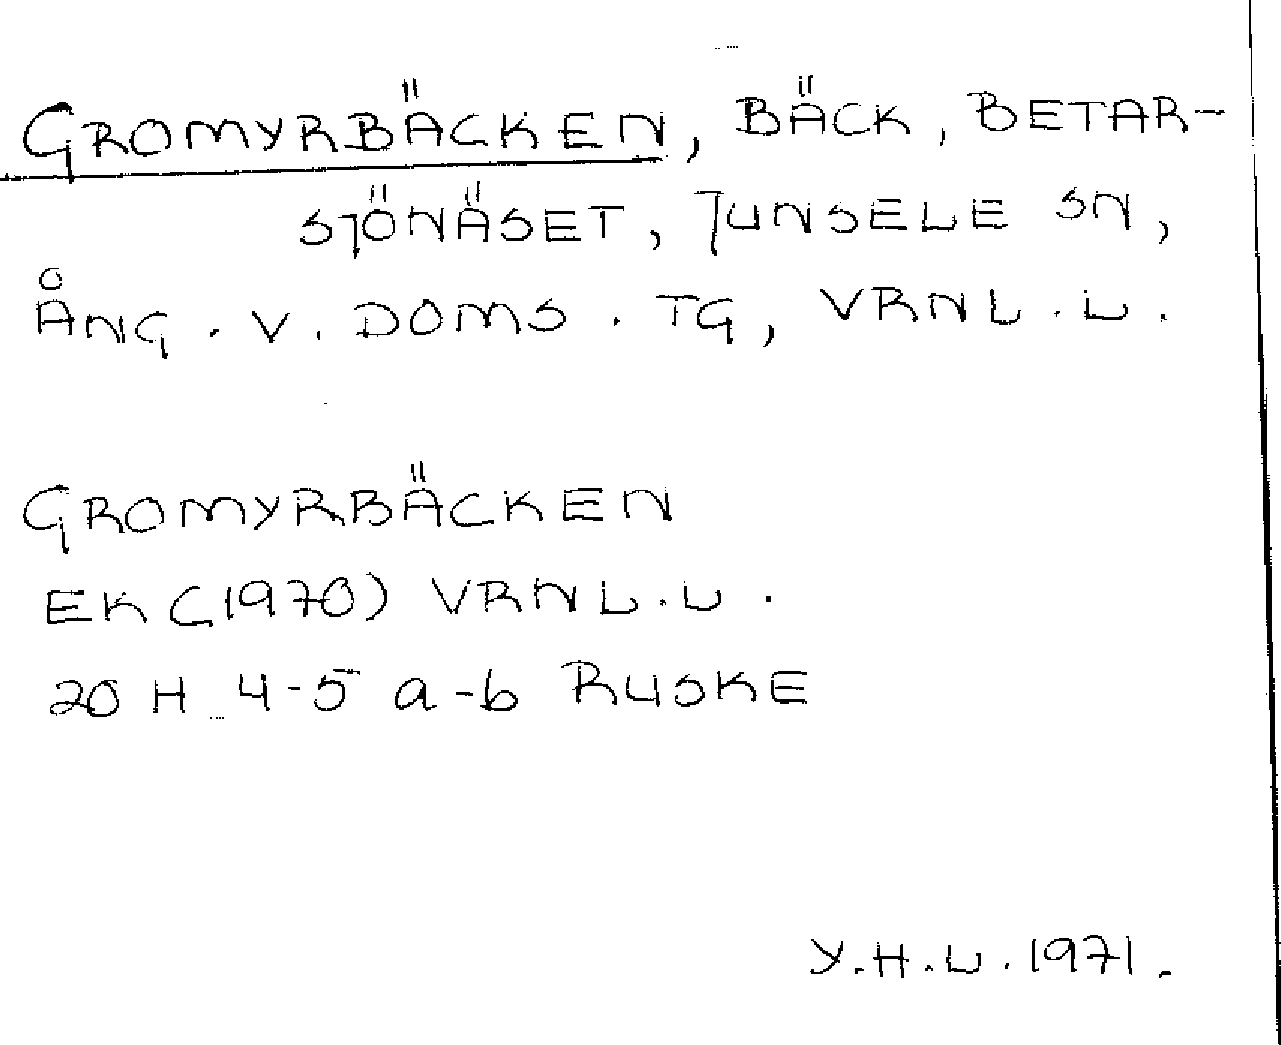 GROMYRBÄCKEN, BÄCK, BETAR-
SJÖNÄSET, JUNSELE SN,
ÅNG. V. DOMS. TG, VRNL. L.
GROMYRBÄCKEN
EK (1970) VRNL.L.
20 H 4-5 a-b RUSKE
Y.H.L. 1971.